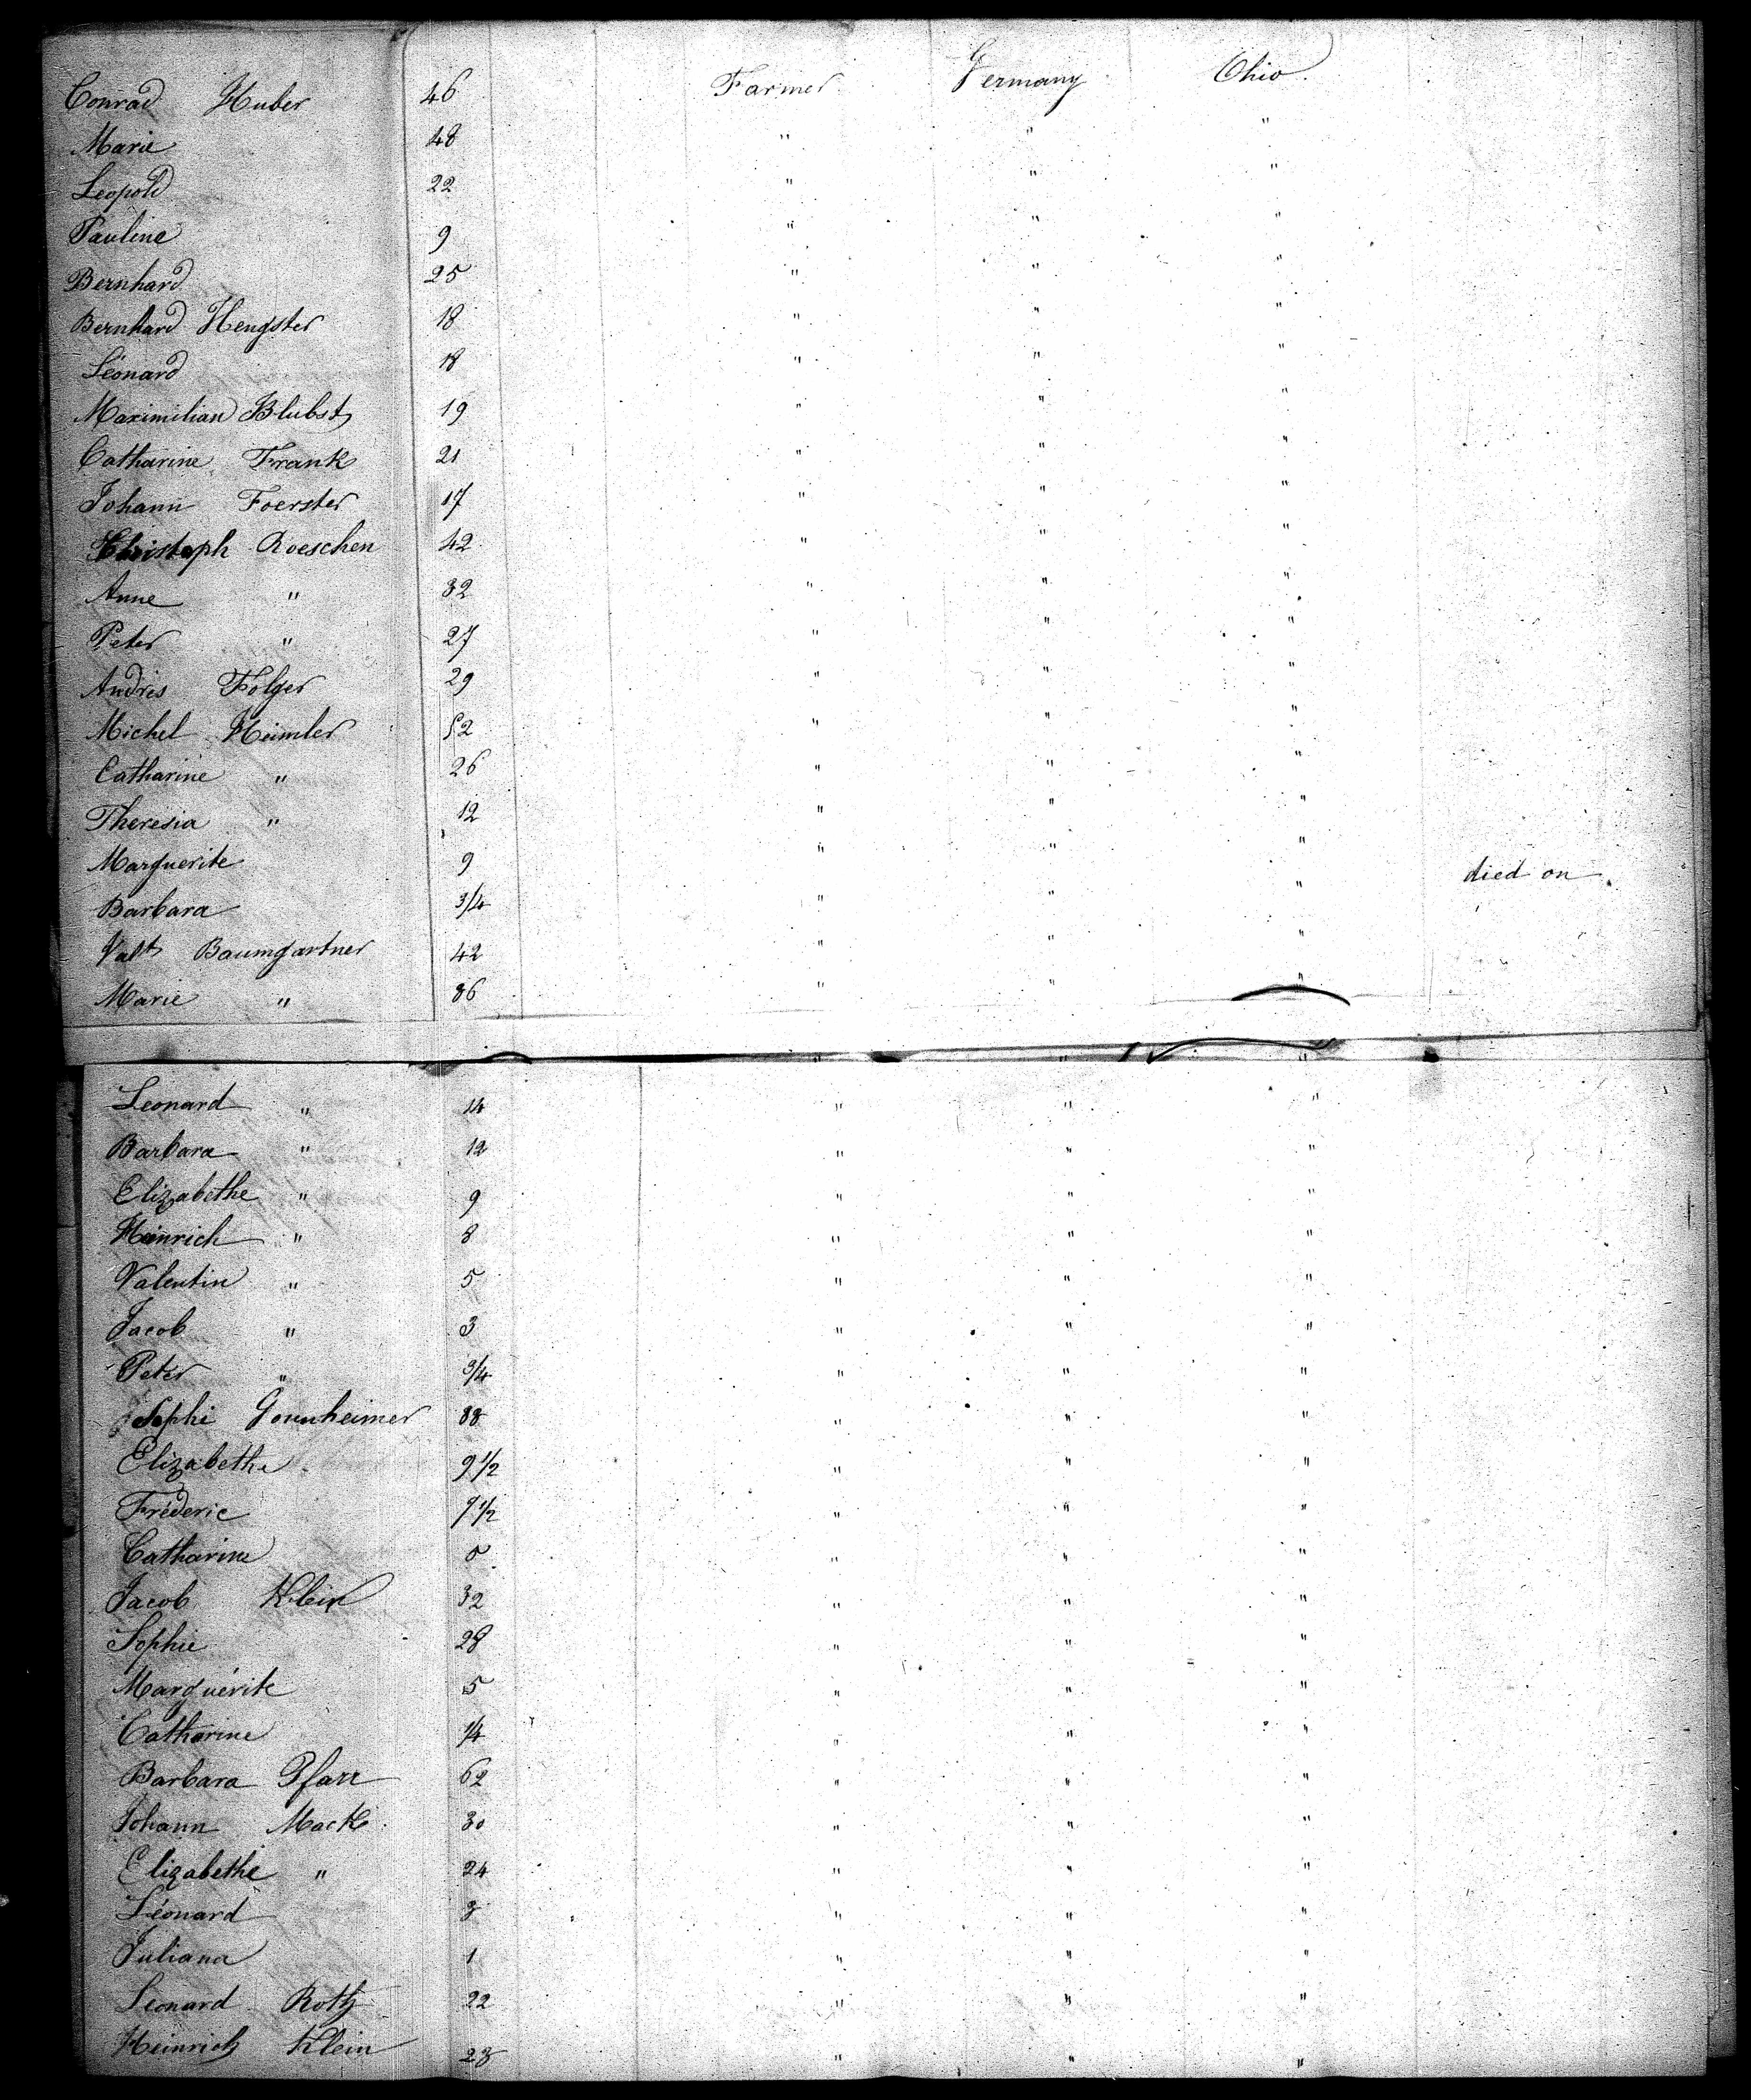 Conrad Huber 46 Farmer Germany Ohio.
Marie 48 " " "
Leopold 22 " " "
Pauline 9 " " "
Bernhard 25 " " "
Bernhard Hengster 18 " " "
Léonard 18 " " "
Maximilian Blubst 19 " " "
Catharine Frank 21 " " "
Johann Foerster 17 " " "
Christoph Roeschen 42 " " "
Anne " 32 " " "
Peter " 27 " " "
Andrés Folger 29 " " "
Michel Heimler 52 " " "
Catharine " 26 " " "
Theresia " 12 " " "
Marguerite 9 " " "
Barbara 3/4 " " " died on
Valt Baumgartner 42 " " "
Marie " 36 " " "
" " "
Leonard " 14 " " "
Barbara " 12 " " "
Elizabethe " 9 " " "
Heinrich " 8 " " "
Valentin " 5 " " "
Jacob " 3 " " "
Peter " 3/4 " " "
Sophi 38 " " "
Elizabethe 9 1/2 " " "
Fréderic 7 1/2 " " "
Catharine 5 " " "
Jacob Klein 32 " " "
Sophie 28 " " "
Marguérite 5 " " "
Catharine 1/4 " " "
Barbara Pfarr 62 " " "
Johann Macke 30 " " "
Elizabethe " 24 " " "
Léonard 3 " " "
Juliana 1 " " "
Leonard Roth 22 " " "
Heinrich Klein 23 " " "